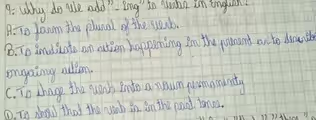 9- Why do we add "-ing" to verbs in English?
A. To form the plural of the verb.
B. To indicate an action happening in the present or to describe
ongoing action.
C. To change the verb into a noun permanently
D. To show that the verb is in the past tense.